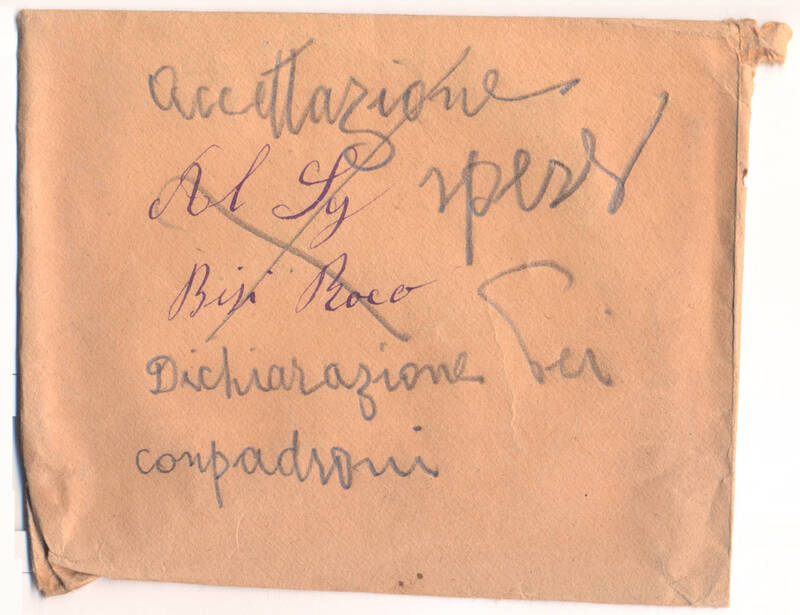 accettazione
spese
Al Sg
Bisi Roco
Dichiarazione Dei
conpadroni